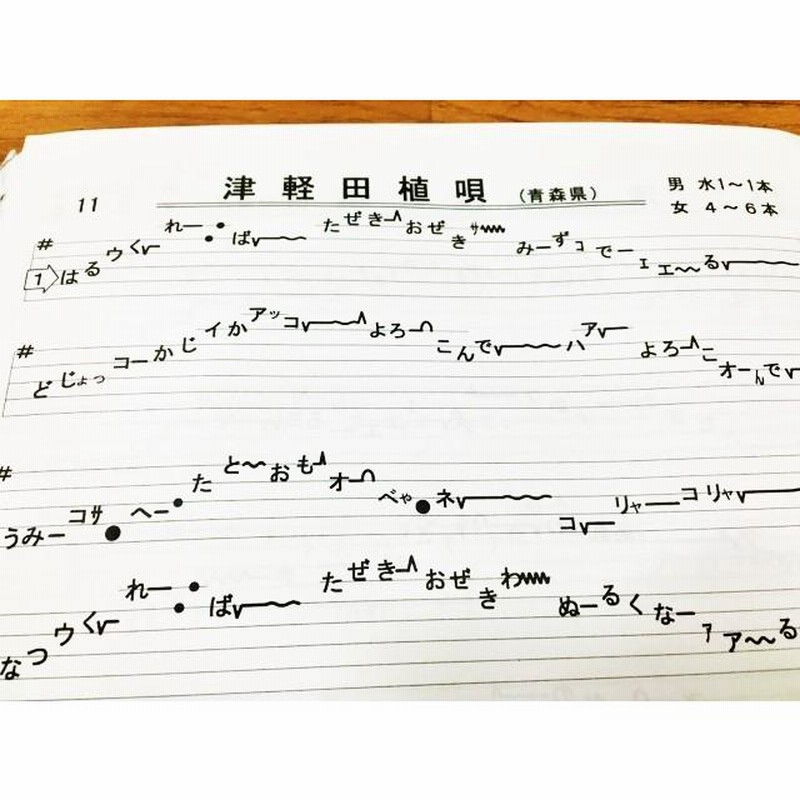 11 津軽田植唄 (青森県) 男 水1～1本
女 4～6本
# 1 はるゥくれーばー たぜきーおぜきサ みーずコでーェェ～るー
# どじょっコーかじイかアッコー よろーこんでー ハアー よろーこオーんで
# うみーコサ へーたと～おもオーべゃネー コーリャーコリャー
なつゥくれーばー たぜきーおぜきわ ぬーるくなーァア～る